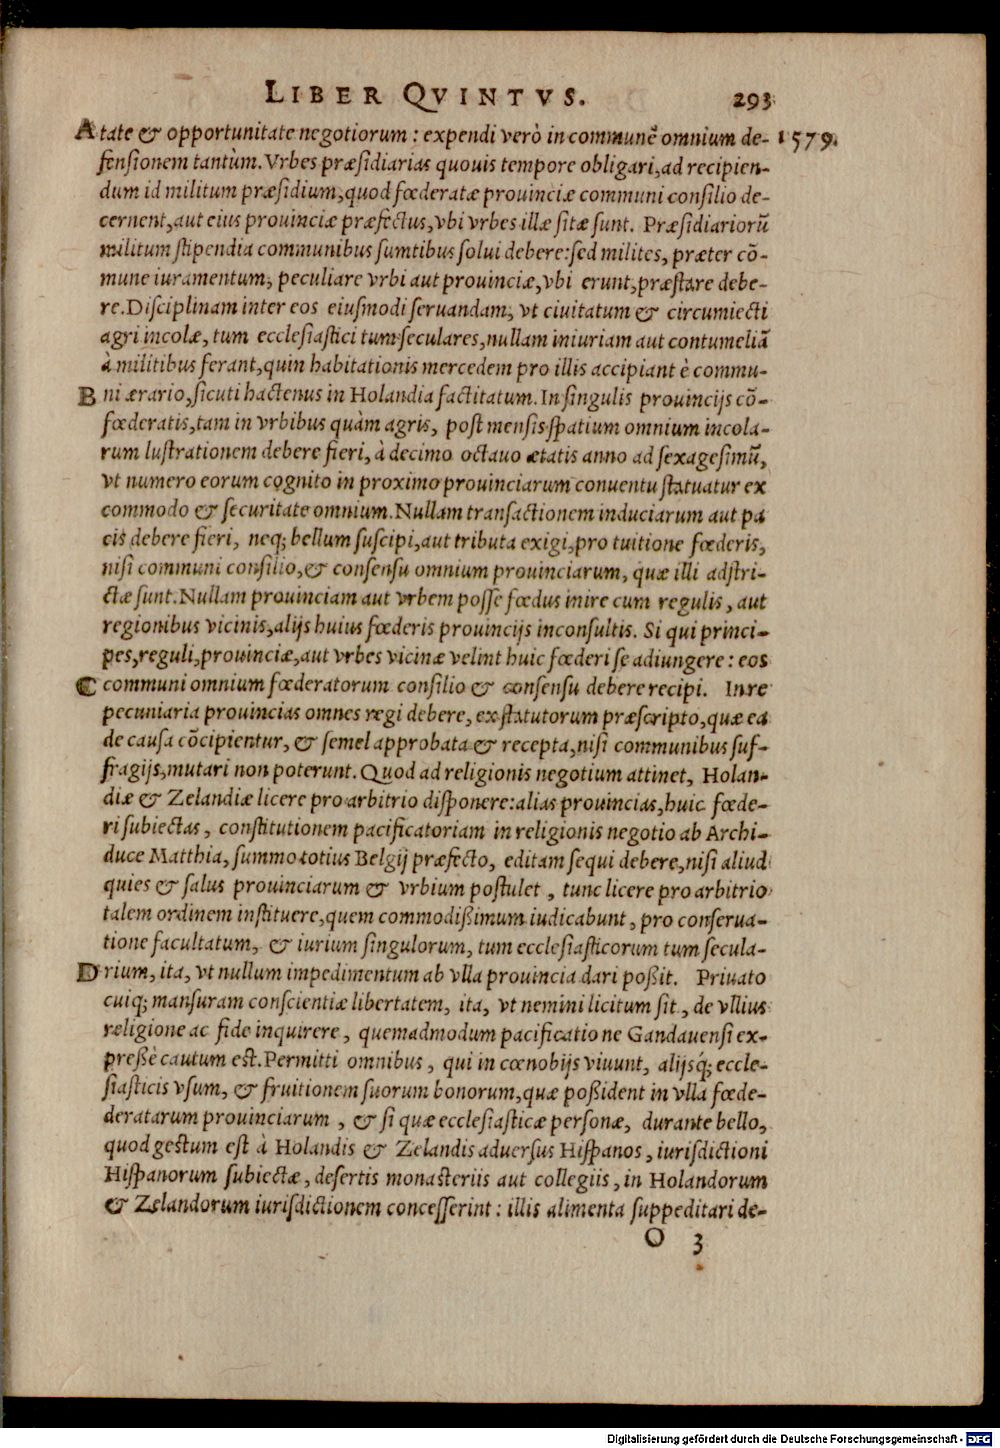 LIBER QVINTVS. 293
A tate & opportunitate negotiorum : expendi verò in communẽ omnium de- 1579.
fensionem tantùm. Vrbes præsidiarias quouis tempore obligari, ad recipien-
dum id militum præsidium, quod fœderatæ prouinciæ communi consilio de-
cernent, aut eius prouinciæ præfectus, vbi vrbes illæ sitæ sunt. Præsidiariorũ
militum stipendia communibus sumtibus solui debere: sed milites, præter cõ-
mune iuramentum, peculiare vrbi aut prouinciæ, vbi erunt, præstare debe-
re. Disciplinam inter eos eiusmodi seruandam, vt ciuitatum & circumiecti
agri incolæ, tum ecclesiastici tum seculares, nullam iniuriam aut contumeliã
à militibus ferant, quin habitationis mercedem pro illis accipiant è commu-
B ni ærario, sicuti hactenus in Holandia factitatum. In singulis prouincijs cõ-
fœderatis, tam in vrbibus quàm agris, post mensis spatium omnium incola-
rum lustrationem debere fieri, à decimo octauo ætatis anno ad sexagesimũ,
vt numero eorum cognito in proximo prouinciarum conuentu statuatur ex
commodo & securitate omnium. Nullam transactionem induciarum aut pa
cis debere fieri, neq; bellum suscipi, aut tributa exigi, pro tuitione fœderis,
nisi communi consilio, & consensu omnium prouinciarum, quæ illi adstri-
ctæ sunt. Nullam prouinciam aut vrbem posse fœdus inire cum regulis, aut
regionibus vicinis, alijs huius fœderis prouincijs inconsultis. Si qui princi-
pes, reguli, prouinciæ, aut vrbes vicinæ velint huic fœderi se adiungere : eos
C communi omnium fœderatorum consilio & consensu debere recipi. In re
pecuniaria prouincias omnes regi debere, ex statutorum præscripto, quæ ea
de causa cõcipientur, & semel approbata & recepta, nisi communibus suf-
fragijs, mutari non poterunt. Quod ad religionis negotium attinet, Holan-
diæ & Zelandiæ licere pro arbitrio disponere: alias prouincias, huic fœde-
ri subiectas, constitutionem pacificatoriam in religionis negotio ab Archi-
duce Matthia, summo totius Belgij præfecto, editam sequi debere, nisi aliud
quies & salus prouinciarum & vrbium postulet, tunc licere pro arbitrio
talem ordinem instituere, quem commodißimum iudicabunt, pro conserua-
tione facultatum, & iurium singulorum, tum ecclesiasticorum tum secula-
D rium, ita, vt nullum impedimentum ab vlla prouincia dari poßit. Priuato
cuiq; mansuram conscientiæ libertatem, ita, vt nemini licitum sit, de vllius
religione ac fide inquirere, quemadmodum pacificatione Gandauensi ex-
preßè cautum est. Permitti omnibus, qui in cœnobijs viuunt, alijsq́; eccle-
siasticis vsum, & fruitionem suorum bonorum, quæ poßident in vlla fœde-
deratarum prouinciarum, & si quæ ecclesiasticæ personæ, durante bello,
quod gestum est à Holandis & Zelandis aduersus Hispanos, iurisdictioni
Hispanorum subiectæ, desertis monasteriis aut collegiis, in Holandorum
& Zelandorum iurisdictionem concesserint : illis alimenta suppeditari de-
O 3
Digitalisierung gefördert durch die Deutsche Forschungsgemeinschaft - DFG